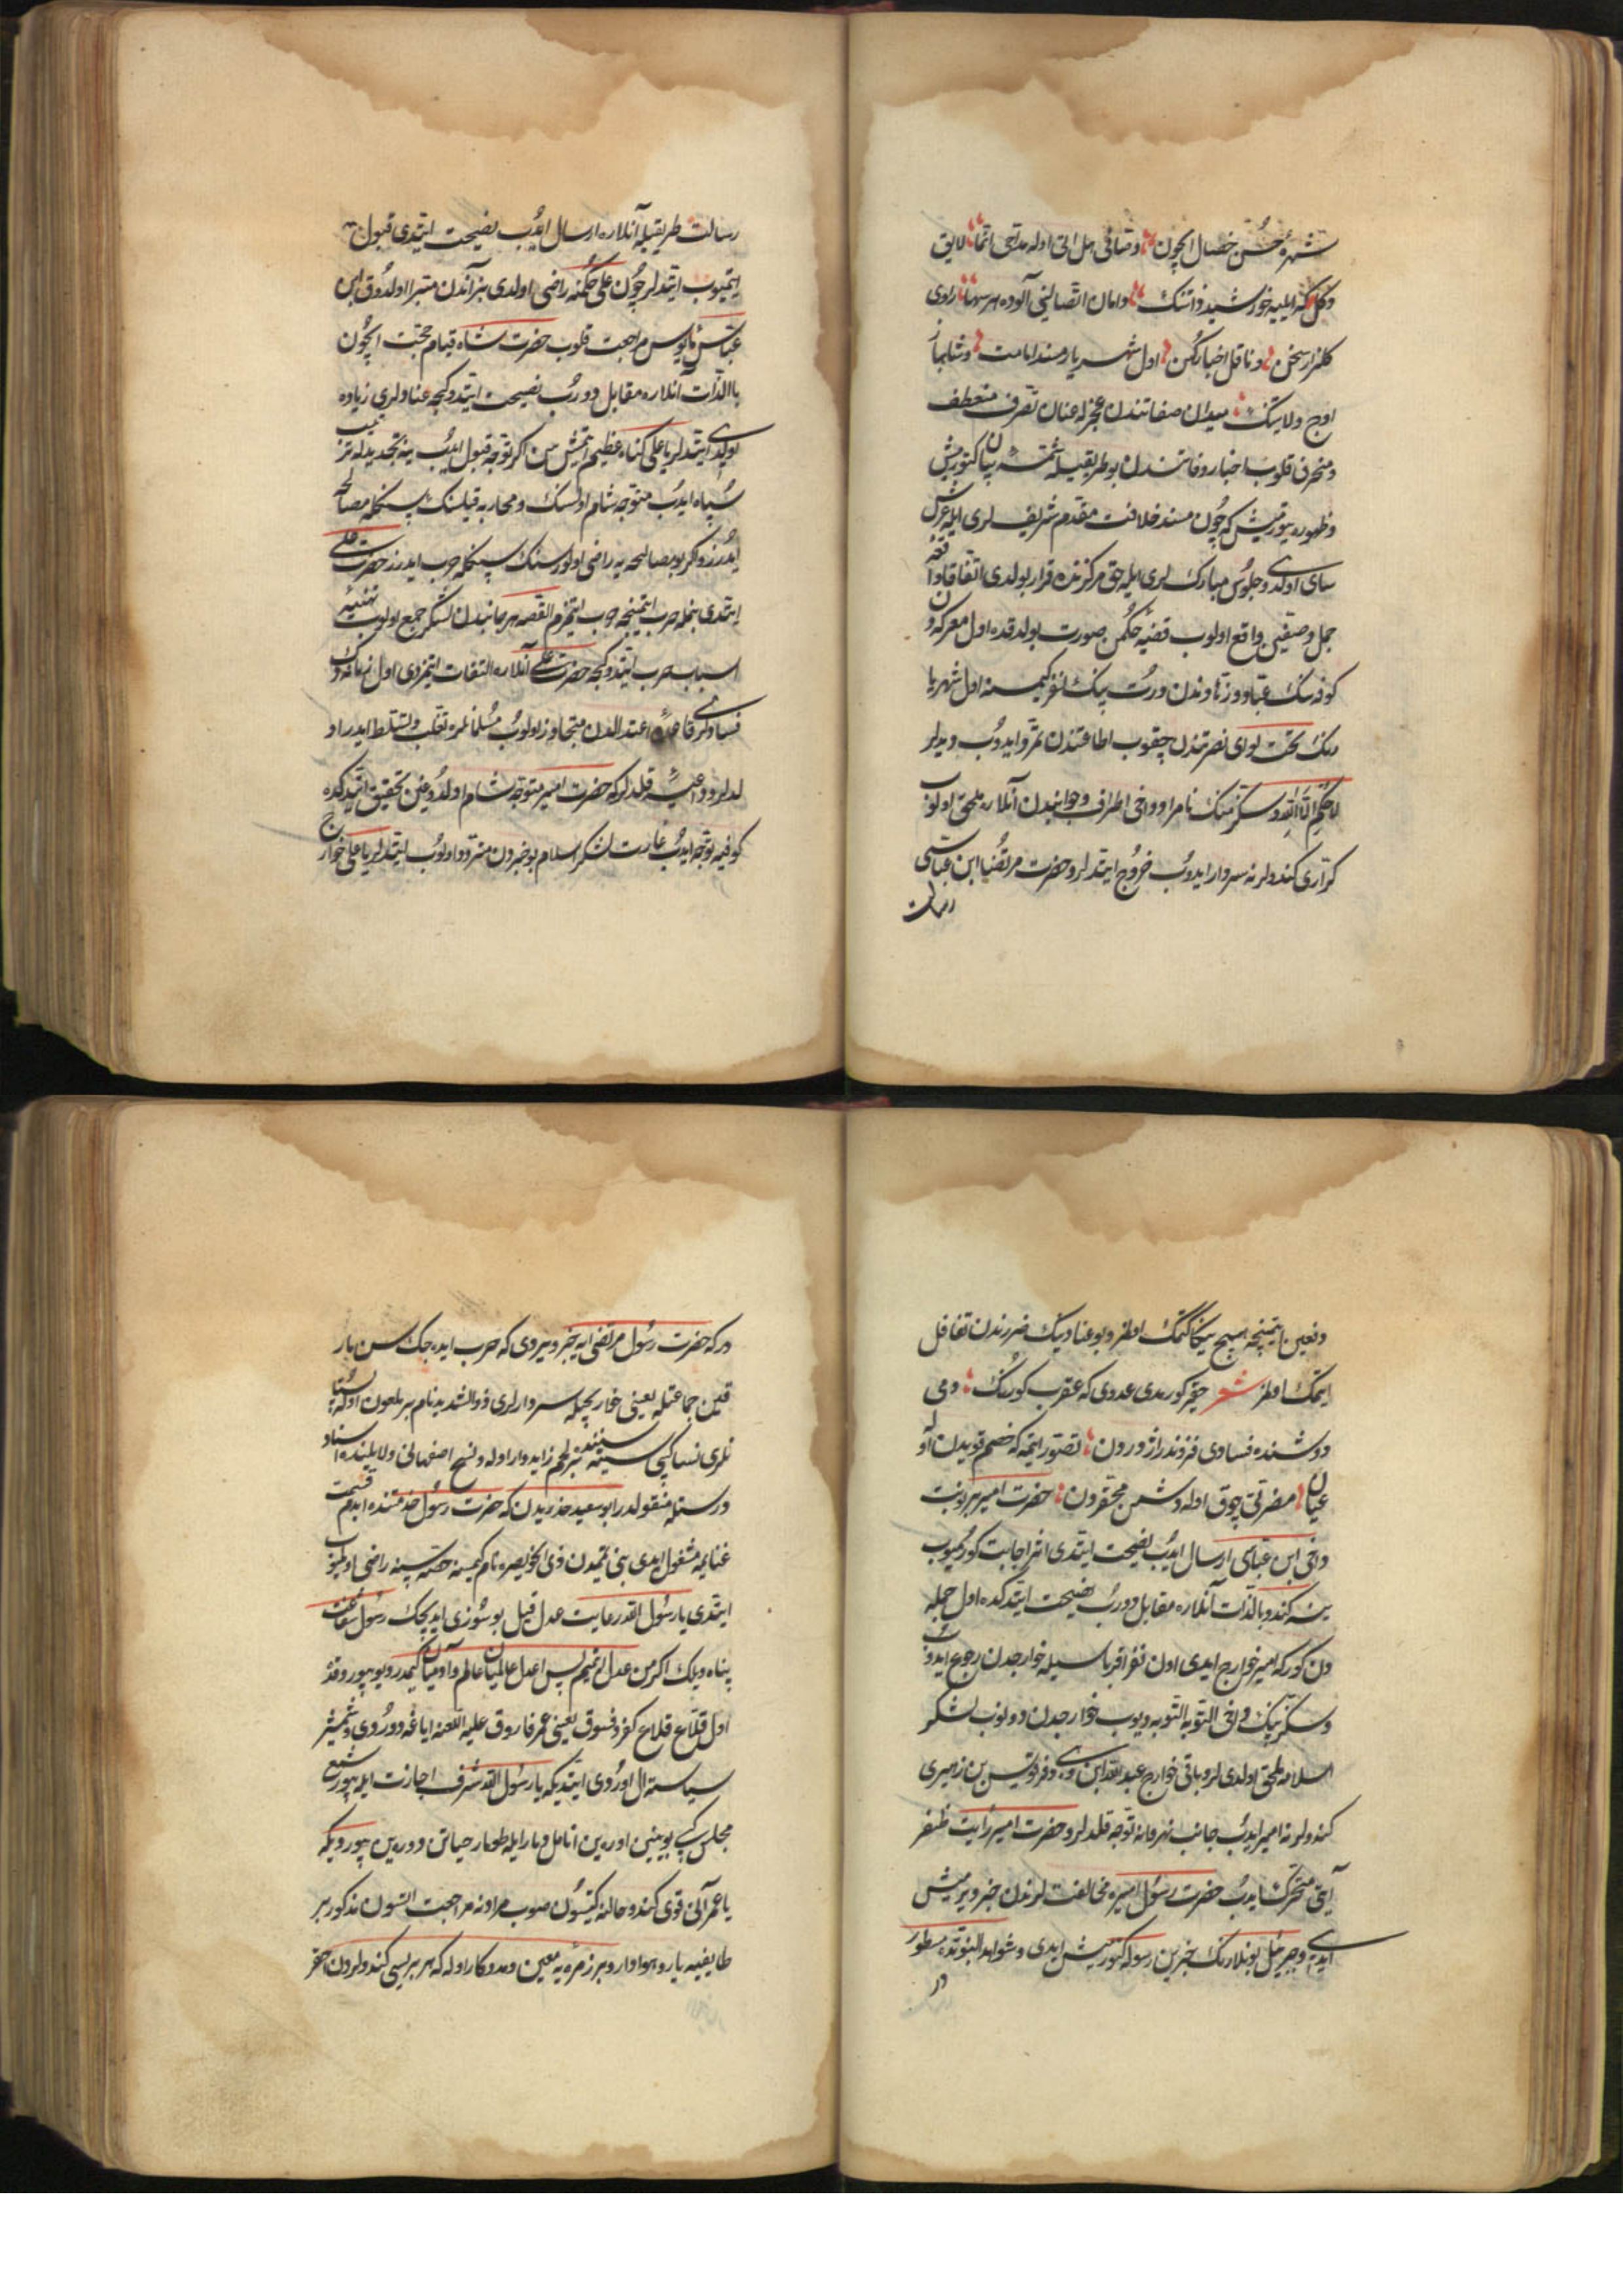 شهرهٔ حُسن خصال ایچون وصافی هل اتی اوله مداحی انّما لایق
دکل که ایلیه خورشید ذاتنک دامان اتصالینی آلوده هر سها راوی
کلزار سخن و ناقل اخبار کُهن اول شهریار مسند امامت و شاهباز
اوج ولایتنک میدان صفاتندن عجزله عنان تصرف منعطف
ومنحرف قلوب اخبار وفاتندن بو طریقیله شمّه بیان کتورمیش
وظهوره یتورمیش که چُون مسند خلافت مقدم شریف لری ایله عرش
سای اولدی وجلوُس مبارک لری ایله حق مرکزنده قرار بولدی اتفاقا واقعهٔ
جمل وصفین واقع اولوب قضیّه حکمین صورت بولدقده اول معرکه دن
کوفه نک عبّاد وزهّادندن دورت بیک نفر کیمسنه اول شهریا
رنک تحت لوای نصرتندن چقوب اطاعتندن تمرّد ایدوُب ودیدلر
لا حُکمَ اِلّا لِلّه وسکز بیک نامراد داخی اطراف وجوانبدن آنلاره ملحق اولوب
کرّاری کندولرنه سردار ایدوُب خروُج ایتدلر وحضرت مرتضی ابن عباسی
رسالت
رسالت طریقیله آنلاره ارسال ایدُب نصیحت ایتدی قبول
ایتمیوب ایتدلر چُون علی حُکمنه راضی اولدی بز آندن متبرا اولدوُق ابن
عبّاس مأیوس مراجعت قلوب حضرت شاه قیام حجّت ایچُون
بالذّات آنلاره مقابل دورُب نصیحت ایتدوکجه عنادلری زیاده
بولدی ایتدلر یا علی کناه عظیم ایتمیش سن اکر توبه قبول ایدُب ینه تجدیدله ترتیب
سُپاه ایدُب متوجه شام اولسنک ومحاربه قیلسنک سنکله مصالحه
ایدُرز واکر بو مصالحه یه راضی اولورسنک سنکله حرب ایدرز حضرت علی
ایتدی بنمله حرب ایتمینجه حرب ایتمزم القصه هر جانبدن لشکر جمع اولوب تهیّئه
اسباب حرب ایتدوکجه حضرت علی آنلاره التفات ایتمزدی اول زمانه دک
فسادلری قاعدهٔ اعتدالدن متجاوز اولوُب مسُلمانلره تغلب وتسلط ایدر او
لدلر وداعیّه قلدلر که حضرت امیر متوجّه شام اولدوُغین تحقیق ایتدکده
کوفیه توجّه ایدُب غارت لشکر اسلام بو خبردن متردد اولوُب ایتدلر یا علی خوارج
دفعین ایتمینچه هیچ ییکا کتمک اولمز وبو عنادینک ضررندن تغافل
ایتمک اولمز شعر حقیر کورمدی عدوی که عقرب کورنک دمی
دوشنده فسادی فزوندر ازدردن تصوّر ایتمه که خصم قویدن اوله
عیان مضرتی چوق اوله دشمن محقردن حضرت امیر بر نوبت
داخی ابن عبّاسی ارسال ایدُب نصیحت ایتدی اثر اجابت کورمیوب
ینه کندو بالذّات آنلاره مقابل دورُب نصیحت ایتدکده اول جمله
دن کورکه امیر خوارج ایدی اون نفر اقرباسیله خوارجدن رجوع ایدوُب
وسکز بیک داخی التوبه التوبه دیوب خوارجدن دونوب لشکر
اسلامه ملحق اولدی لر وباقی خوارج عبدالله ابن وهب وفرقوس بن زهیری
کندولرنه امیر ایدُب جانب نهروانه توجّه قلدلر وحضرت امیر رایت ظفر
آیتی متحرک ایدُب حضرت رسُول امیره مخالفت لرندن خبر ویرمیش
ایدی وجبرئیل بونلارنک خبرین رسوله کتورمیش ایدی وشواهد النبوتده مسطور
در
در که حضرت رسُول مرتضی ایه خبر ویردی که حرب ایده جک سن مار
قین جماعتله یعنی خارجیله سردارلری ذوالثدیه نام بر ملعون اوله پستا
نلری نسا کبی سینه سنده بر لحم زاید وار اوله
درسته منقولدر ابو سعید خدریدن که حضرت رسُول خدمتنده ایدم قسمت
غنایمه مشغول ایدی بنی تمیمدن ذی الخویصره نام کیمسنه حصّه سینه راضی اولمیوب
ایتدی یا رسُول الله رعایت عدل قیل بو سُوزی ایدیجک رسُول شفاعت
پناه دیدک اکر من عدل ایتمیم پس اعدل عالمیان عالم وآدمیان کیمدر دیو بیوردوقده
اول قلاع قلاع کفر وفسوق یعنی عمر فاروق علیه اللعنه ایاغه دورُدی وشمشیر
سیاسته ال اورُدی ایتدیکه یا رسُول الله شرف اجازت ایله بیور شمع
مجلس کبی بوینین اورەین انامل وبار ایله طومار حیاتن دورەین بیوردیکه
یا عمر آنی قوی کندو حالنه کیتسوُن صوب مرادنه مراجعت اتسون مذکور بر
طایفیه یار وهوادار وبر زمره یه معین ومددکار اوله که هر بریسی کندولردن احقر